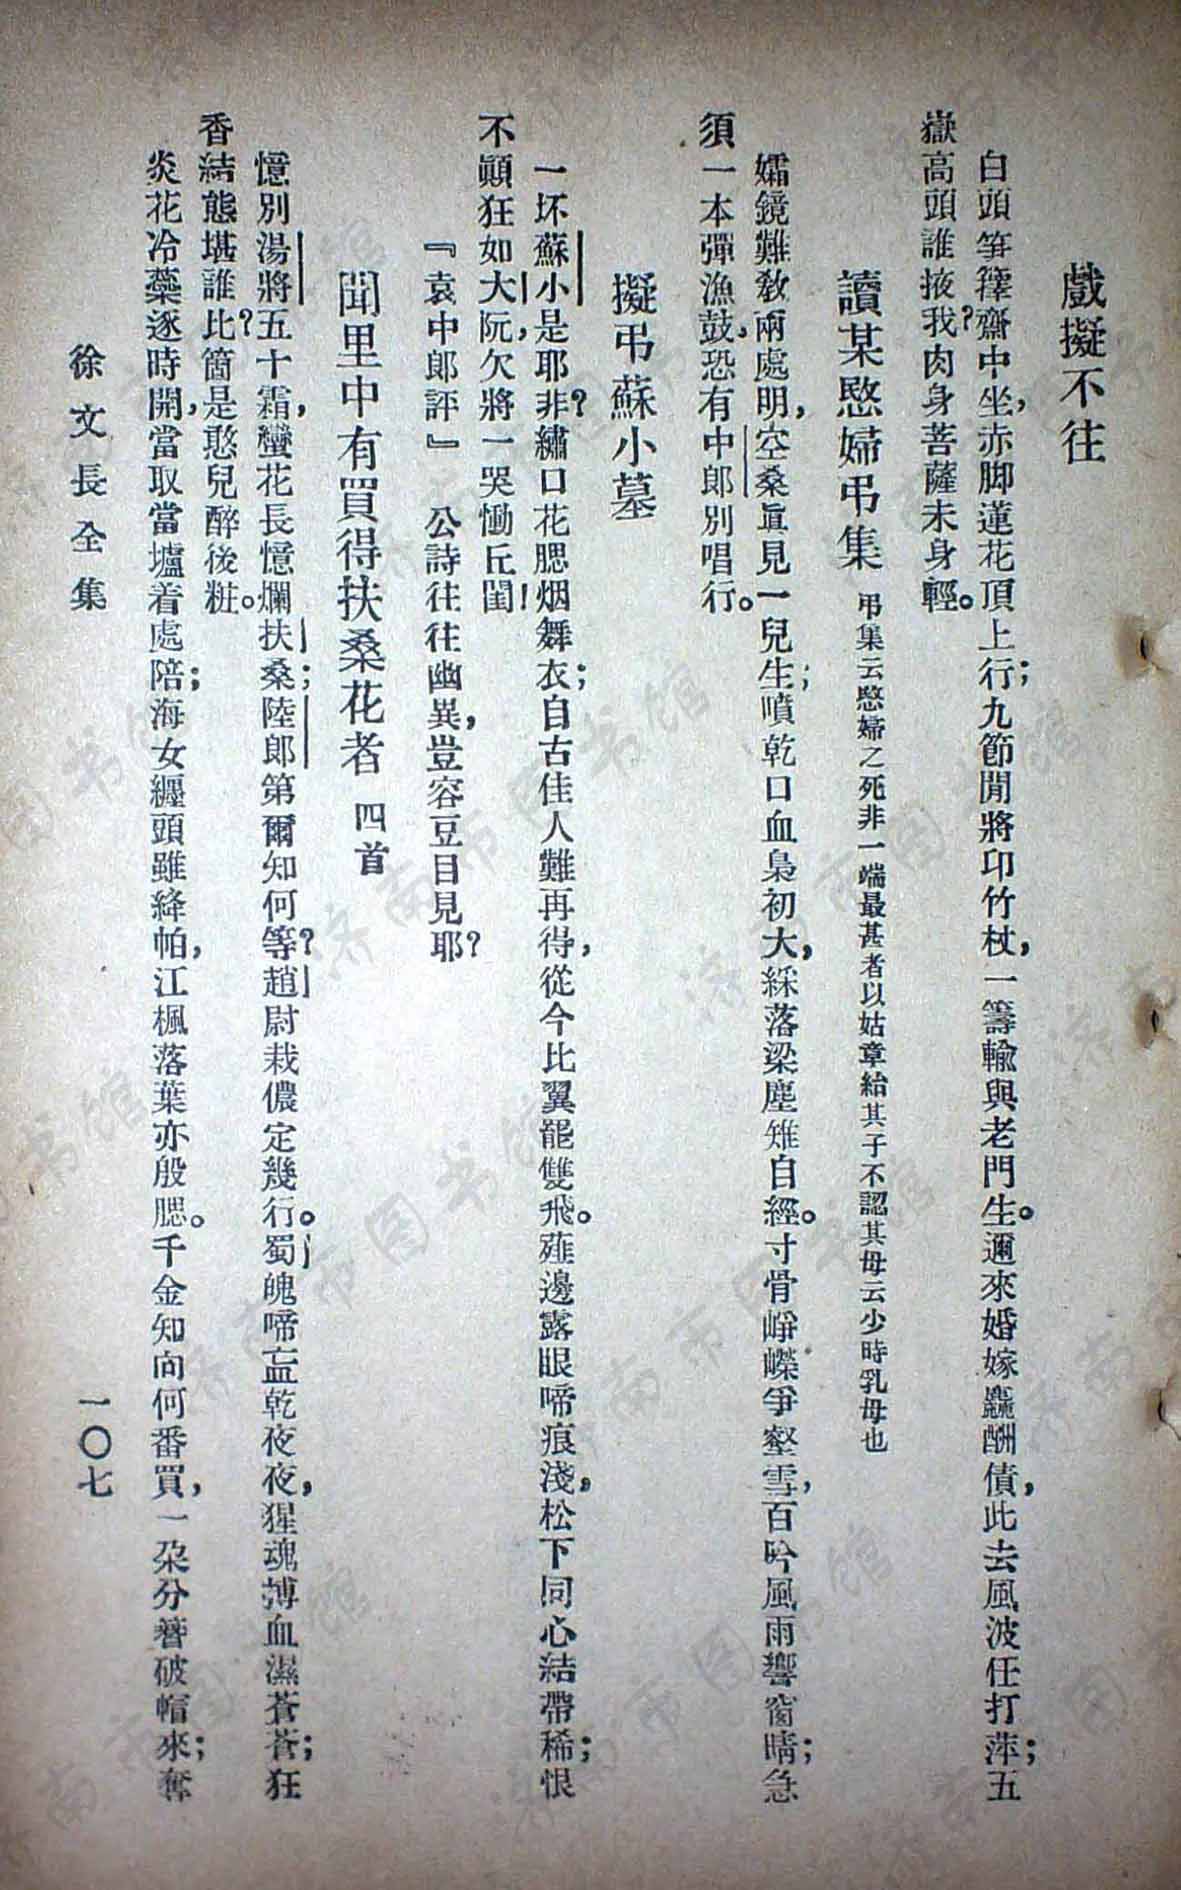 戲擬不往
白頭箏籜齋中坐，赤脚蓮花頂上行；九節閒將卭竹杖，一籌輸與老門生。邇來婚嫁麤酬債，此去風波任打萍；五
嶽高頭誰掖我？肉身菩薩未身輕。
讀某愍婦弔集 弔集云愍婦之死非一端最甚者以姑章紿其子不認其母云少時乳母也
孀鏡難教兩處明，空桑眞見一兒生；噴乾口血梟初大，綵落梁塵雉自經。寸骨崢嶸爭壑雪，百吟風雨響窗晴；急
須一本彈漁鼓，恐有中郞別唱行。
擬弔蘇小墓
一坏蘇小是耶非？繡口花腮烟舞衣；自古佳人難再得，從今比翼罷雙飛。薤邊露眼啼痕淺，松下同心結帶稀；恨
不顚狂如大阮，欠將一哭慟丘閨！
『袁中郞評』 公詩往往幽異，豈容豆目見耶？
聞里中有買得扶桑花者 四首
憶別湯將五十霜，蠻花長憶爛扶桑；陸郞第爾知何等？趙尉栽儂定幾行。蜀魄啼㿽乾夜夜，猩魂搏血濕蒼蒼；狂
香結態堪誰比？箇是憨兒醉後粧。
炎花冷蘂逐時開，當取當壚着處陪；海女纒頭雖絳帕，江楓落葉亦殷腮。千金知向何番買，一朶分簪破帽來；奪
徐文長全集
一〇七